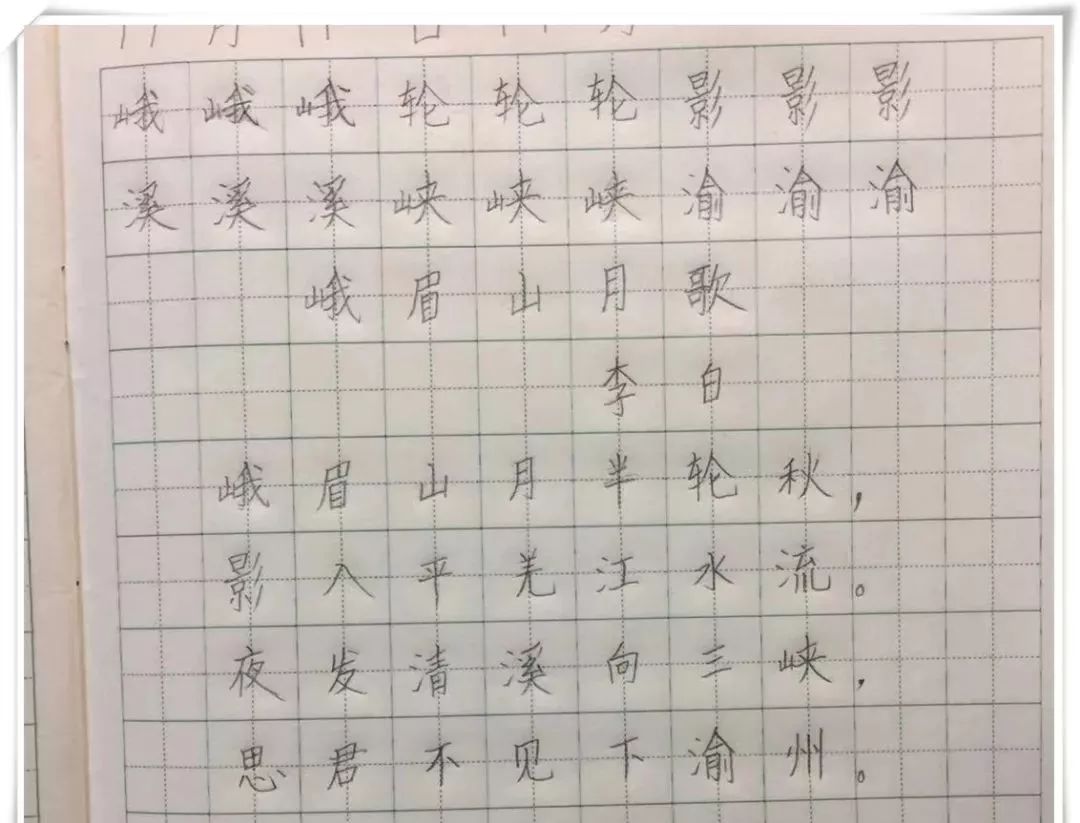 峨峨峨轮轮轮影影影
溪溪溪峡峡峡渝渝渝
峨眉山月歌
李白
峨眉山月半轮秋，
影入平羌江水流。
夜发清溪向三峡，
思君不见下渝州。